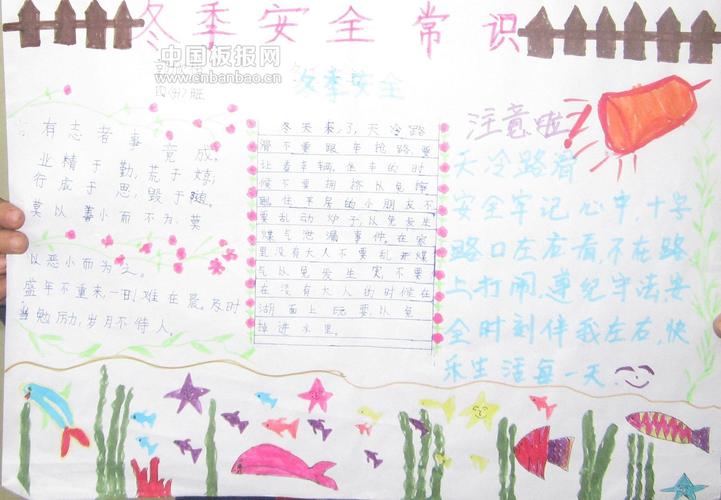 冬季安全常识
中国板报网
www.cnbanbao.cn
冬季安全
有志者事竟成,
业精于勤,荒于嬉,
行成于思,毁于随。
莫以善小而不为,莫
以恶小而为之。
盛年不重来,一日难在晨。及时
当勉励,岁月不待人。
冬天来了,天冷路
滑不要跟车抢路要
让着车辆,坐车的时
候不要拥挤以免
住平房的小朋友不
要乱动炉子以免发生
煤气泄漏事件。在家
里没有大人不要乱动煤
气以免发生 不要
在没有大人的时候在
湖面上玩耍,以免
掉进水里。
注意啦!
天冷路滑
安全牢记心中十字
路口左右看,不在路
上打闹,遵纪守法安
全时刻伴我左右,快
乐生活每一天。